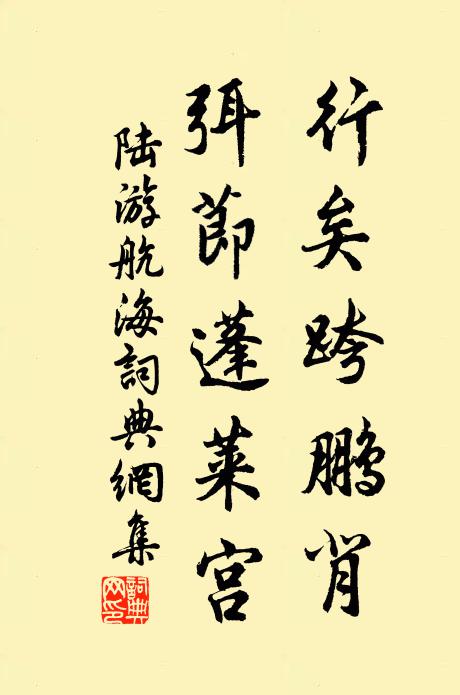 行矣跨鵬背
弭節蓬萊宫
陸游航海詞典網集
詞典
网印